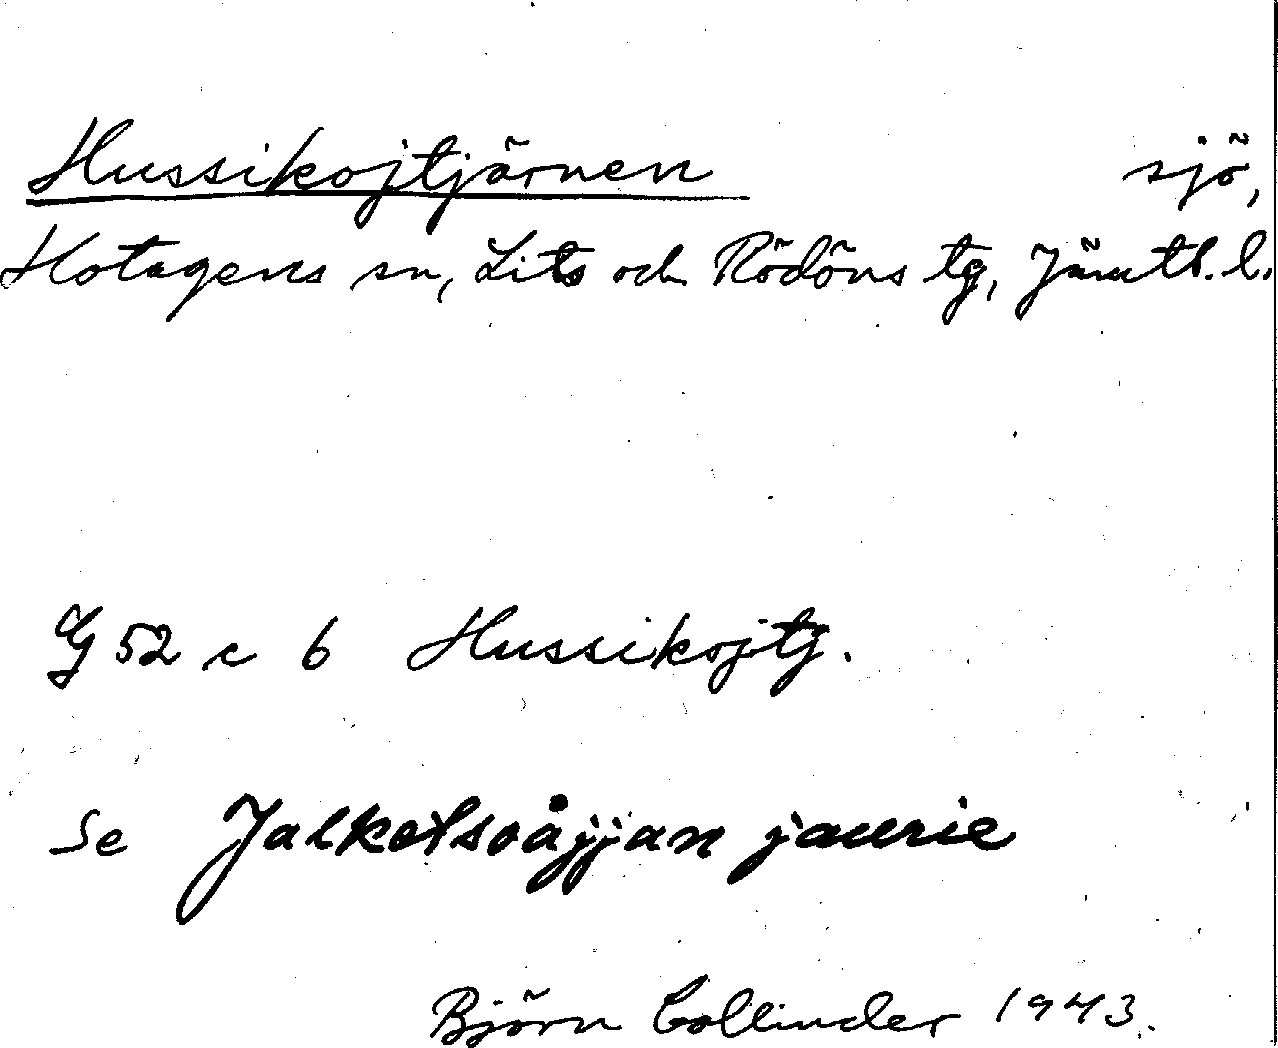 Hussikojtjärnen sjö,
Hotagens sn, Lits och Rödöns tg, Jämtl. l.
G 52 c 6 Hussikojtj.
Se Jalketsoåjjan jaurie
Björn Collinder 1943.